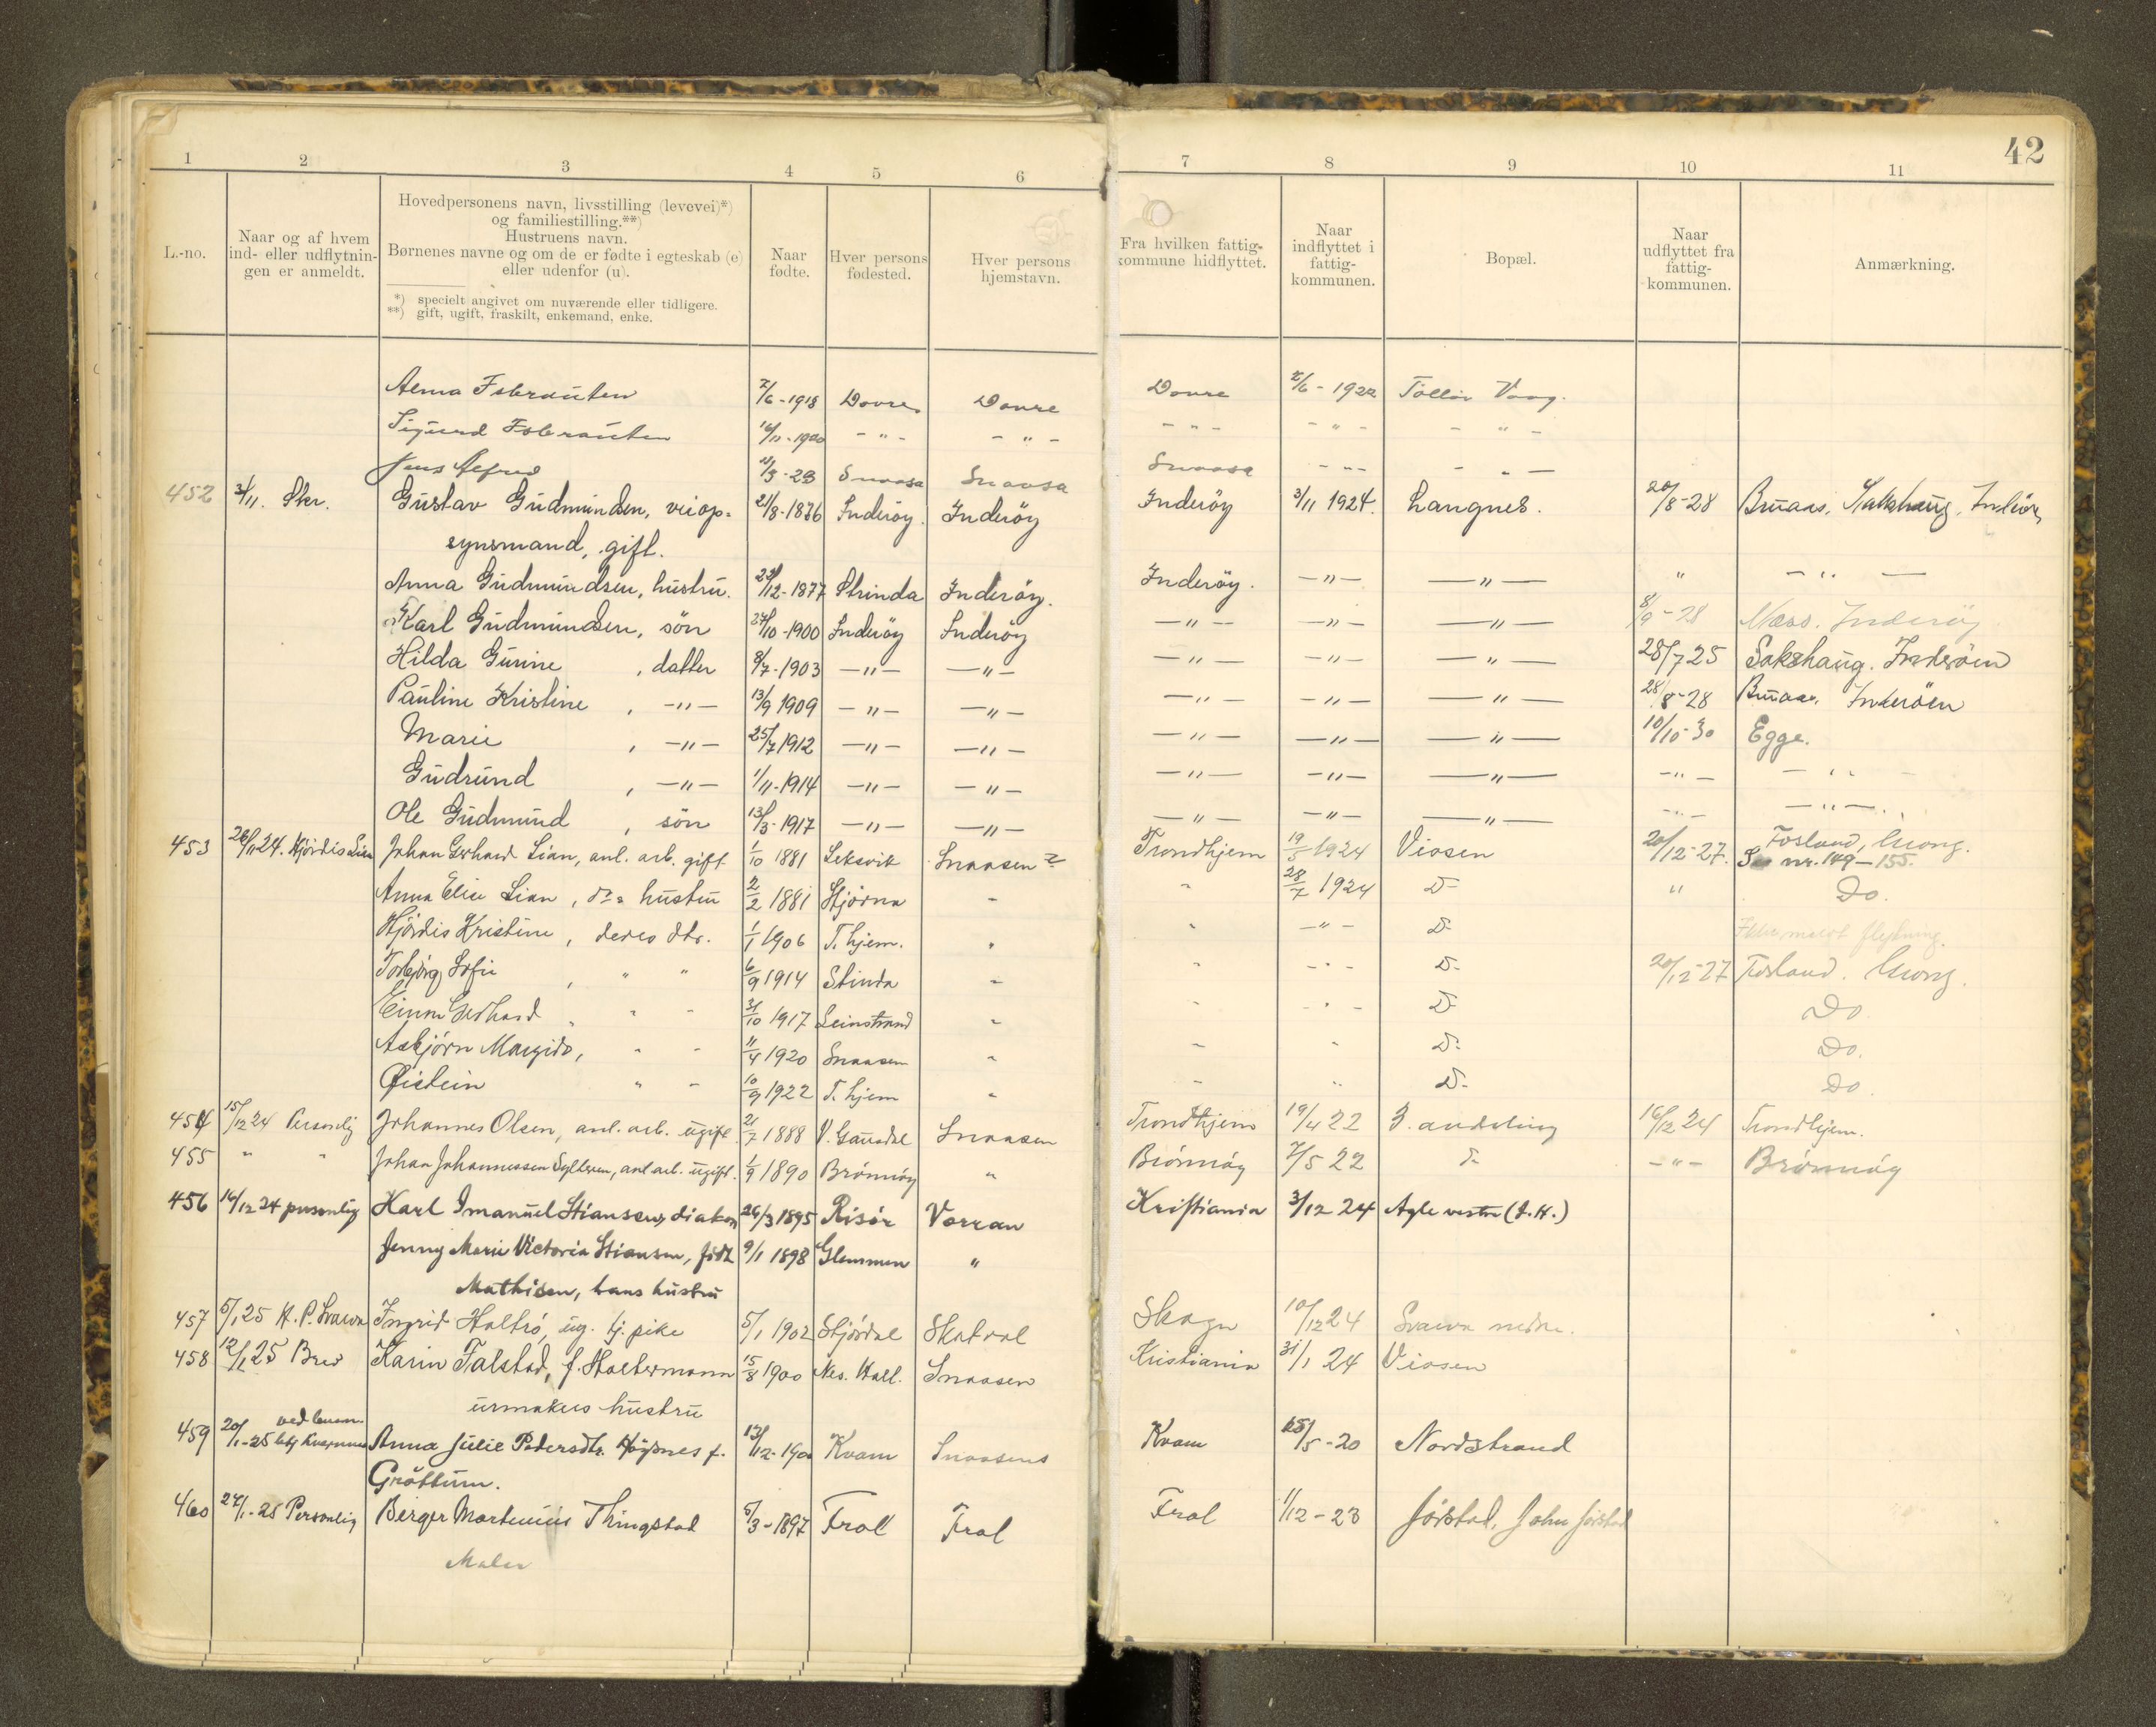 42
1 2 3 4 5 6 7 8 9 10 11
L.-no.
Naar og af hvem
ind- eller udflytnin-
gen er anmeldt.
Hovedpersonens navn, livsstilling (levevei)*)
og familiestilling.**)
Hustruens navn.
Børnenes navne og om de er fødte i egteskab (e)
eller udenfor (u).
*) specielt angivet om nuværende eller tidligere.
**) gift, ugift, fraskilt, enkemand, enke.
Naar
fødte.
Hver persons
fødested.
Hver persons
hjemstavn.
Fra hvilken fattig-
kommune hidflyttet.
Naar
indflyttet i
fattig-
kommunen.
Bopæl.
Naar
udflyttet fra
fattig-
kommunen.
Anmærkning.
Alma 7/6-1918 Dovre Dovre Dovre 2/6-1922
Sigurd 16/11-1920 -"- -"- -"- -"- -"-
Jens Alfred /3-23 Snaasa Snaasa Snaasa -"- -"-
452 3/11. Skr. Gustav Gudmundsen, veiop= 21/8-1876 Inderöy. Inderöy Inderöy 3/11 1924. Langnes. 20/8-28 Sakshaug,
synsmand, gift.
Anna Gudmundsen, hustru. /12-1877 Strinda Inderöy. Inderöy. -"- -"- " -"-
Karl Gudmundsen, sön 24/10-1900 Inderöy Inderöy -"- -"- -"- 8/9-28 Næss. Inderöy
Hilda Gurine, datter 8/7-1903 -"- -"- -"- -"- -"- 28/7 25 Sakshaug. Inderöen
Pauline Kristine, -"- 13/9 1909 -"- -"- -"- -"- -"- 28/8-28 Inderöen
Marie, -"- 25/7 1912 -"- -"- -"- -"- -"- 10/10-30 Egge.
Gudrund, -"- 1/11-1914 -"- -"- -"- -"- -"- -"- -"-
Ole Gudmund, sön 13/3-1917 -"- -"- -"- -"- -"- -"- -"-
453 26/11 24. Hjördis Lian Johan Gerhard Lian, anl. arb. gift 1/10 1881 Leksvik Snaasen Trondhjem 19/5 1924 Viosen 20/12-27. Fosland, Grong.
nr. 149-155.
Anna Elise Lian, ds hustru 2/2 1881 Stjørna " " 28/7 1924 D- " Do.
Hjördis Kristine, deres dtr. 1/1 1906 T.hjem. " " -"- D- Ikke meldt flytning.
Torbjörg Sofie, " " 6/9 1914 Stinda " " -"- D- 20/12-27 Fosland. Grong.
Einar Gerhard " " 31/10 1917 Leinstrand " " -"- D- Do
Asbjörn Margido, " " 11/4 1920 Snaasen " " " D- Do.
Øistein " " 10/9 1922 T.hjem " " " D- Do
454 15/12 24 Personlig Johannes Olsen, anl. arb. ugift 21/7 1888 V. Gausdal Snaasen Trondhjem 19/4 22 3. avdeling 16/12 24 Trondhjem.
455 " " Johan Johannessen anl. arb. ugift. 1/9 1890 Brönnöy " Brönnöy 2/5 22 D- -"- Brönnöy
456 16/12 24 personlig Karl Imanuel Stiansen, diakon 26/3 1895 Risör Verran Kristiania 3/12 24 Agle vestre (J.H.)
Jenny Marie Victoria Stiansen, födt 9/1 1898 Glemmen "
Mathisen, hans hustru
457 5/1 25 H.P. Svarva Ingrid Haltrö, ug. tj. pike 5/1 1902 Stjördal Skatval Skogn 10/12 24 Svarva nedre.
458 12/1 25 Brev Karin Falstad, f. 15/8 1900 Nes. Hall. Snaasen Kristiania 31/1 24 Viosen
urmakers hustru
459 20/1-25 ved Anna Julie Pedersdtr. f. 13/12-190 Kvam Snaasens Kvam 15/5-20 Nordstrand
Gröttum.
460 24/1-25 Personlig Berger Martinius Thingstad 5/3-1897 Frol Frol Frol 1/12-23 Jörstad, John Jörstad
Maler